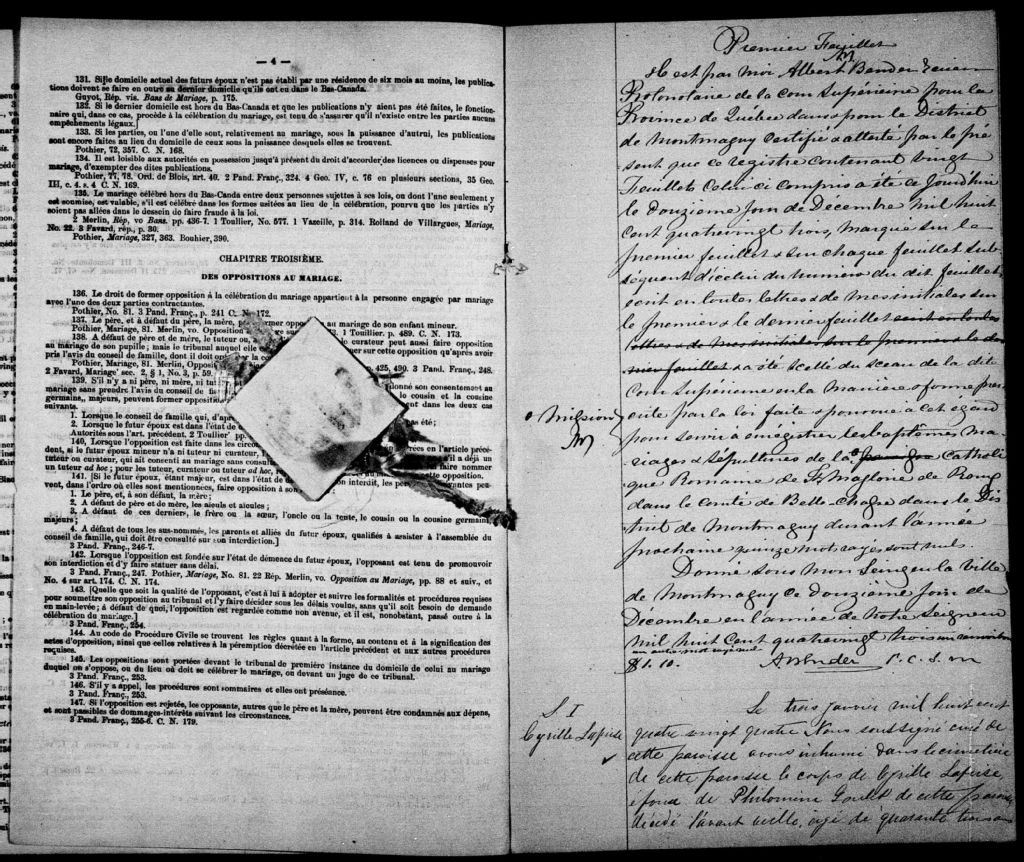 — 4 —
131. Si le domicile actuel des futurs époux n'est pas établi par une résidence de six mois au moins, les publica-
tions doivent se faire en outre au dernier domicile qu'ils ont eu dans le Bas-Canada.
Guyot, Rép. vis. Bans de Mariage, p. 175.
132. Si le dernier domicile est hors du Bas-Canada et que les publications n'y aient pas été faites, le fonction-
naire qui, dans ce cas, procède à la célébration du mariage, est tenu de s'assurer qu'il n'existe entre les parties aucuns
empêchements légaux.]
133. Si les parties, ou l'une d'elle sont, relativement au mariage, sous la puissance d'autrui, les publications
sont encore faites au lieu du domicile de ceux sous la puissance desquels elles se trouvent.
Pothier, 72, 357. C. N. 168.
134. Il est loisible aux autorités en possession jusqu'à présent du droit d'accorder des licences ou dispenses pour
mariage, d'exempter des dites publications.
Pothier, 77, 78. Ord. de Blois, art. 40. 2 Pand. Franç., 324. 4 Geo. IV, c. 76 en plusieurs sections, 35 Geo.
III, c. 4. s. 4 C. N. 169.
135. Le mariage célébré hors du Bas-Canda entre deux personnes sujettes à ses lois, ou dont l'une seulement y
est soumise, est valable, s'il est célébré dans les formes usitées au lieu de la célébration, pourvu que les parties n'y
soient pas allées dans le dessein de faire fraude à la loi.
2 Merlin, Rép, vo Bans. pp. 436-7. 1 Toullier, No. 577. 1 Vazeille, p. 314. Rolland de Villargues, Mariage,
No. 22. 3 Favard, rép., p. 30.
Pothier, Mariage, 327, 363. Bouhier, 390.
CHAPITRE TROISIÈME.
DES OPPOSITIONS AU MARIAGE.
136. Le droit de former opposition à la célébration du mariage appartient à la personne engagée par mariage
avec l'une des deux parties contractantes.
Pothier, No. 81. 3 Pand. Franç., p. 241 C. N. 172.
137. Le père, et à défaut du père, la mère, former opposition au mariage de son enfant mineur.
Pothier, Mariage, 81. Merlin, vo. Opposition 2. 1 Touillier. p. 489. C. N. 173.
138. A défaut de père et de mère, le tuteur ou, le curateur peut aussi faire opposition
au mariage de son pupille; mais le tribunal auquel elle er sur cette opposition qu'après avoir
pris l'avis du conseil de famille, dont il doit
Pothier, Mariage, 81. Merlin, p. 425, 490. 3 Pand. Franç., 248.
2 Favard, Mariage' sec. 2, § 1, No. 3, p. 59.
139. S'il n'y a ni père, ni mère, ni donné son consentement au
mariage sans prendre l'avis du conseil de le cousin et la cousine
germains, majeurs, peuvent former dans les deux cas
suivants.
1. Lorsque le conseil de famille qui, d' pas été;
2. Lorsque le futur époux est dans l'état de
Autorités sous l'art. précédent. 2 Toullier' pp.
140, Lorsque l'opposition est faite dans les en l'article précé-
dent, si le futur époux mineur n'a ni tuteur ni curateur, s'il a déjà un
tuteur ou curateur, qui ait consenti au mariage sans faire nommer
un tuteur ad hoc; pour les tuteur, curateur ou tuteur ad hoc, opposition.
141. [Si le futur époux, étant majeur, est dans l'état de interdit, les peu-
vent, dans l'ordre où elles sont mentionnées, faire opposition à son
1. Le père, et, à son défaut, la mère;
2. A défaut de père et de mère, les aïeuls et aïeules;
3. A défaut de ces derniers, le frère ou la sœur, l'oncle ou la tente, le cousin ou la cousine germains,
majeurs;
4. A défaut de tous les sus-nommés, les parents et alliés du futur époux, qualifiés à assister à l'assemblée du
conseil de famille, qui doit être consulté sur son interdiction.]
3 Pand. Franç., 246-7.
142. Lorsque l'opposition est fondée sur l'état de démence du futur époux, l'opposant est tenu de promouvoir
son interdiction et d'y faire statuer sans délai.
3 Pand. Franç., 247. Pothier, Mariage, No. 81. 22 Rép. Merlin, vo. Opposition au Mariage, pp. 88 et suiv., et
No. 4 sur art. 174. C. N. 174.
143. [Quelque soit la qualité de l'opposant, c'est à lui à adopter et suivre les formalités et procédures requises
pour soumettre son opposition au tribunal et l'y faire décider sous les délais voulus, sans qu'il soit besoin de demande
en main-levée; à défaut de quoi, l'opposition est regardée comme non avenue, et il est, nonobstant, passé outre à la
célébration du mariage.]
3 Pand. Franç., 254.
144. Au code de Procédure Civile se trouvent les règles quant à la forme, au contenu et à la signification des
actes d'opposition, ainsi que celles relatives à la péremption décrétée en l'article précédent et aux autres procédures
requises.
145. Les oppositions sont portées devant le tribunal de première instance du domicile de celui au mariage
duquel on s'oppose, ou du lieu où doit se célébrer le mariage, ou devant un juge de ce tribunal.
3 Pand. Franç., 253.
146. S'il y a appel, les procédures sont sommaires et elles ont préséance.
3 Pand. Franç., 253.
147. Si l'opposition est rejetée, les opposants, autres que le père et la mère, peuvent être condamnés aux dépens,
et sont passibles de dommages-intérêts suivant les circonstances.
3 Pand. Franç., 255-6. C. N. 179.
Premier Feuillet
est par moi Albert Bender Ecuier
Protonotaire de la Cour Supérieure pour la
Province de Québec dans & pour le District
de Montmagny certifié & attesté par le pré
sent que ce registre contenant vingt
Feuillets celui ci compris a été ce jourdhui
le douzième jour de Décembre mil huit
cent quatrevingt trois, marqué sur le
premier feuillet & sur chaque feuillet sub-
séquent du numéro du dit feuillet,
écrit en toutes lettres & de mes initiales sur
le premier & le dernier feuillet écrit en toutes
lettres & de mes initiales sur le premier & le der
nier feuillet & a été scellé du sceau de la dite
Cour Supérieure en la manière & forme pres
crite par la loi faite & pourvue à cet égard
pour servir à enregistrer les baptêmes ma-
riages & sépultures de la Catholi
que Romaine de St Magloire de Roux
dans le comté de Bellechasse dans le Dis
trict de Montmagny durant l'année
prochaine quinze mots rayés sont nuls
Donné sous mon Seing en la ville
de Montmagny ce douzième jour de
Décembre en l'année de notre Seigneur
mil huit Cent quatrevingt trois
$1.10. ABender P. C. S. M
o Mission
S I
Cyrille Lapise
Le trois janvier mil huit cent
quatre vingt quatre Nous soussigné curé de
cette paroisse avons inhumé dans le cimetière
de cette paroisse le corps de Cyrille Lapise,
époux de Philomine Goulet de cette paroisse
décédé l'avant veille, agé de quarante trois ans